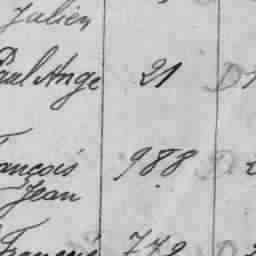 Julien
Paul Ange 21 D
François 988 D
Jean
François 772